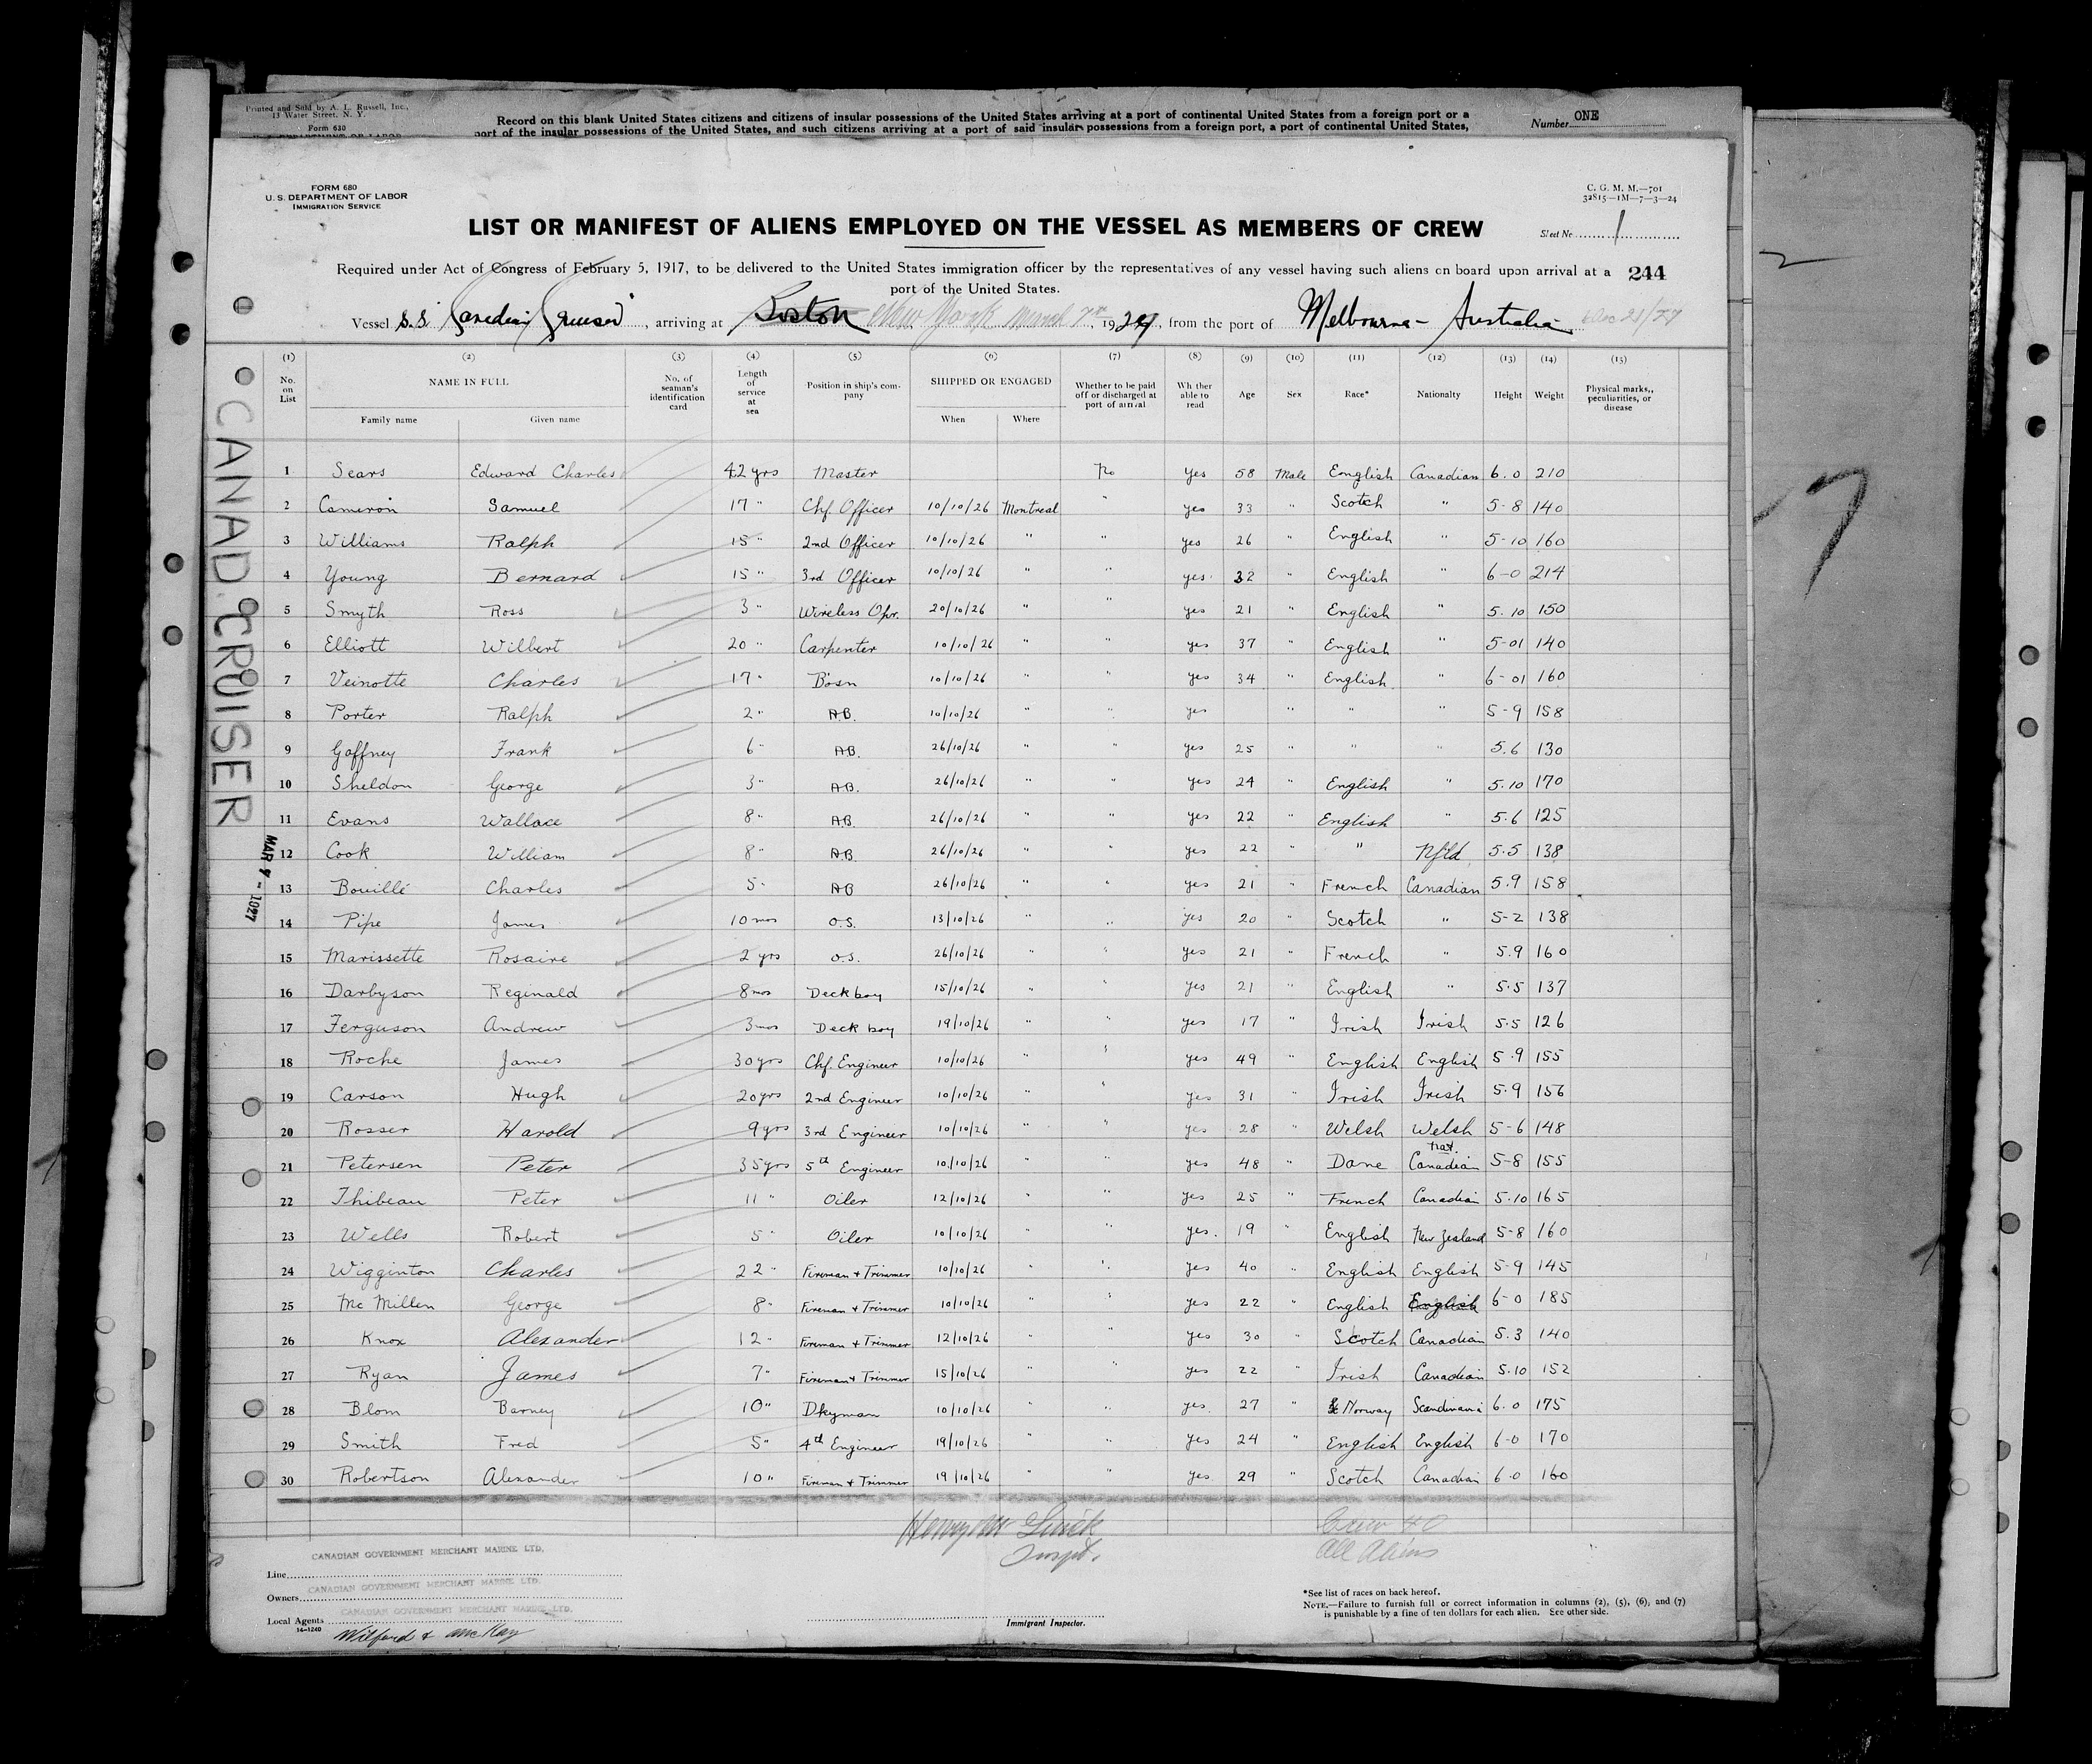 Printed and Sold by A. L. Russell, Inc.,
13 Water Street, N. Y.
Form 630
Record on this blank United States citizens and citizens of insular possessions of the United States arriving at a port of continental United States from a foreign port or a
port of the insular possessions of the United States, and such citizens arriving at a port of said insular possessions from a foreign port, a port of continental United States,
Number ONE
FORM 680
U. S. DEPARTMENT OF LABOR
IMMIGRATION SERVICE
C. G. M. M.—701
32815—1M—7—3—24
LIST OR MANIFEST OF ALIENS EMPLOYED ON THE VESSEL AS MEMBERS OF CREW
Sheet No. 1
Required under Act of Congress of February 5, 1917, to be delivered to the United States immigration officer by the representatives of any vessel having such aliens on board upon arrival at a
port of the United States.
244
Vessel S.S. Canadian Cruiser, arriving at Boston New York March 7th, 1927, from the port of Melbourne - Australia
(1) (2) (3) (4) (5) (6) (7) (8) (9) (10) (11) (12) (13) (14) (15)
No. on List NAME IN FULL No. of seaman's identification card Length of service at sea Position in ship's company SHIPPED OR ENGAGED Whether to be paid off or discharged at port of arrival Whether able to read Age Sex Race* Nationalty Height Weight Physical marks, peculiarities, or disease
Family name Given name When Where
1 Sears Edward Charles 42 yrs Master No yes 58 Male English Canadian 6.0 210
2 Cameron Samuel 17 " Chf. Officer 10/10/26 Montreal " yes 33 " Scotch " 5-8 140
3 Williams Ralph 15 " 2nd Officer 10/10/26 " " yes 26 " English " 5-10 160
4 Young Bernard 15 " 3rd Officer 10/10/26 " " yes 32 " English " 6-0 214
5 Smyth Ross 3 " Wireless Opr. 20/10/26 " " yes 21 " English " 5.10 150
6 Elliott Wilbert 20 " Carpenter 10/10/26 " " yes 37 " English " 5-01 140
7 Veinotte Charles 17 " Bosn 10/10/26 " " yes 34 " English " 6-01 160
8 Porter Ralph 2 " A.B. 10/10/26 " " yes " " " 5-9 158
9 Gaffney Frank 6 " A.B. 26/10/26 " " yes 25 " " " 5.6 130
10 Sheldon George 3 " A.B. 26/10/26 " " yes 24 " English " 5.10 170
11 Evans Wallace 8 " A.B. 26/10/26 " " yes 22 " English " 5.6 125
12 Cook William 8 " A.B. 26/10/26 " " yes 22 " " Nfld 5.5 138
13 Bouillé Charles 5 " AB 26/10/26 " " yes 21 " French Canadian 5.9 158
14 Pipe James 10 mos O.S. 13/10/26 " " yes 20 " Scotch " 5-2 138
15 Marissette Rosaire 2 yrs O.S. 26/10/26 " " yes 21 " French " 5.9 160
16 Darbyson Reginald 8 mos Deck boy 15/10/26 " " yes 21 " English " 5.5 137
17 Ferguson Andrew 3 mos Deck boy 19/10/26 " " yes 17 " Irish Irish 5.5 126
18 Roche James 30 yrs Chf. Engineer 10/10/26 " " yes 49 " English English 5.9 155
19 Carson Hugh 20 yrs 2nd Engineer 10/10/26 " " yes 31 " Irish Irish 5.9 156
20 Rosser Harold 9 yrs 3rd Engineer 10/10/26 " " yes 28 " Welsh Welsh 5-6 148
21 Petersen Peter 35 yrs 5th Engineer 10/10/26 " " yes 48 " Dane nat. Canadian 5-8 155
22 Thibeau Peter 11 " Oiler 12/10/26 " " yes 25 " French Canadian 5.10 165
23 Wells Robert 5 " Oiler 10/10/26 " " yes. 19 " English New Zealand 5-8 160
24 Wigginton Charles 22 " Fireman + Trimmer 10/10/26 " " yes 40 " English English 5-9 145
25 Mc Millen George 8 " Fireman + Trimmer 10/10/26 " " yes 22 " English English 6-0 185
26 Knox Alexander 12 " Fireman + Trimmer 12/10/26 " " yes 30 " Scotch Canadian 5.3 140
27 Ryan James 7 " Fireman + Trimmer 15/10/26 " " yes 22 " Irish Canadian 5.10 152
28 Blom Barney 10 " Dkyman 10/10/26 " " yes. 27 " Norway Scandinavia 6.0 175
29 Smith Fred 5 " 4th Engineer 19/10/26 " " yes 24 " English English 6-0 170
30 Robertson Alexander 10 " Fireman + Trimmer 19/10/26 " " yes 29 " Scotch Canadian 6.0 160
CANAD. CRUISER
MAR 9 - 1927
Crew 40
All Aliens
Inspt.
CANADIAN GOVERNMENT MERCHANT MARINE LTD.
Line
CANADIAN GOVERNMENT MERCHANT MARINE LTD.
Owners
CANADIAN GOVERNMENT MERCHANT MARINE LTD.
Local Agents
14-1240
Wilford & McKay
Immigrant Inspector.
*See list of races on back hereof.
NOTE.—Failure to furnish full or correct information in columns (2), (5), (6), and (7)
is punishable by a fine of ten dollars for each alien. See other side.